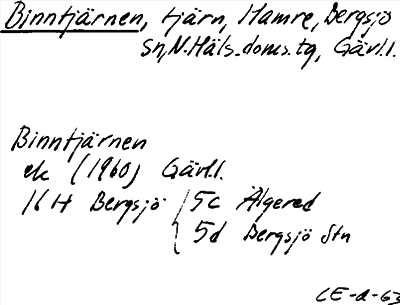 Binntjärnen, tjärn, Hamre, Bergsjö
sn, N. Häls. doms. tg, Gävl.l.
Binntjärnen
ek (1960) Gävl.l.
16H Bergsjö 5c Älgered
5d Bergsjö Stn
CE-a-63